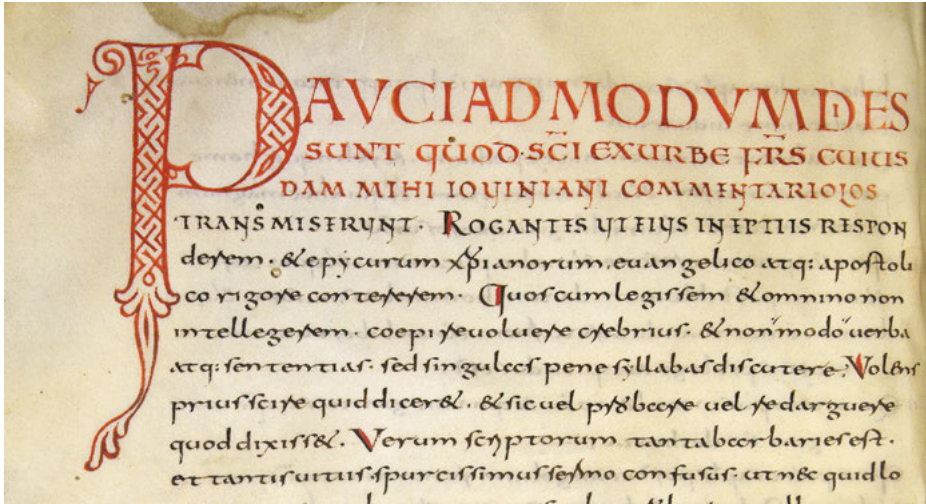 PAVCI ADMODVM DIES
SUNT quod·SCI EXURBE FRS CUIUS
DAM MIHI IOVINIANI COMMENTARIOLOS
TRANSMISERUNT· ROGANTES UT EIUS INEPTIIS RESPON
derem·&epycurum xp̄ianorum.euangelico atq: apostoli
co rigore contererem· Quos cum legissem &omnino non
intellegerem· coepi reuoluere crebrius· &non modo uerba
atq: sententias· sed singulas pene syllabas discutere; Volens
prius scire quid diceret&· &sic uel probare uel redarguere
quod dixiss&· Verum scriptorum tanta barbaries est·
et tantis uitiis spurcissimus sermo confusus· ut nec quid lo